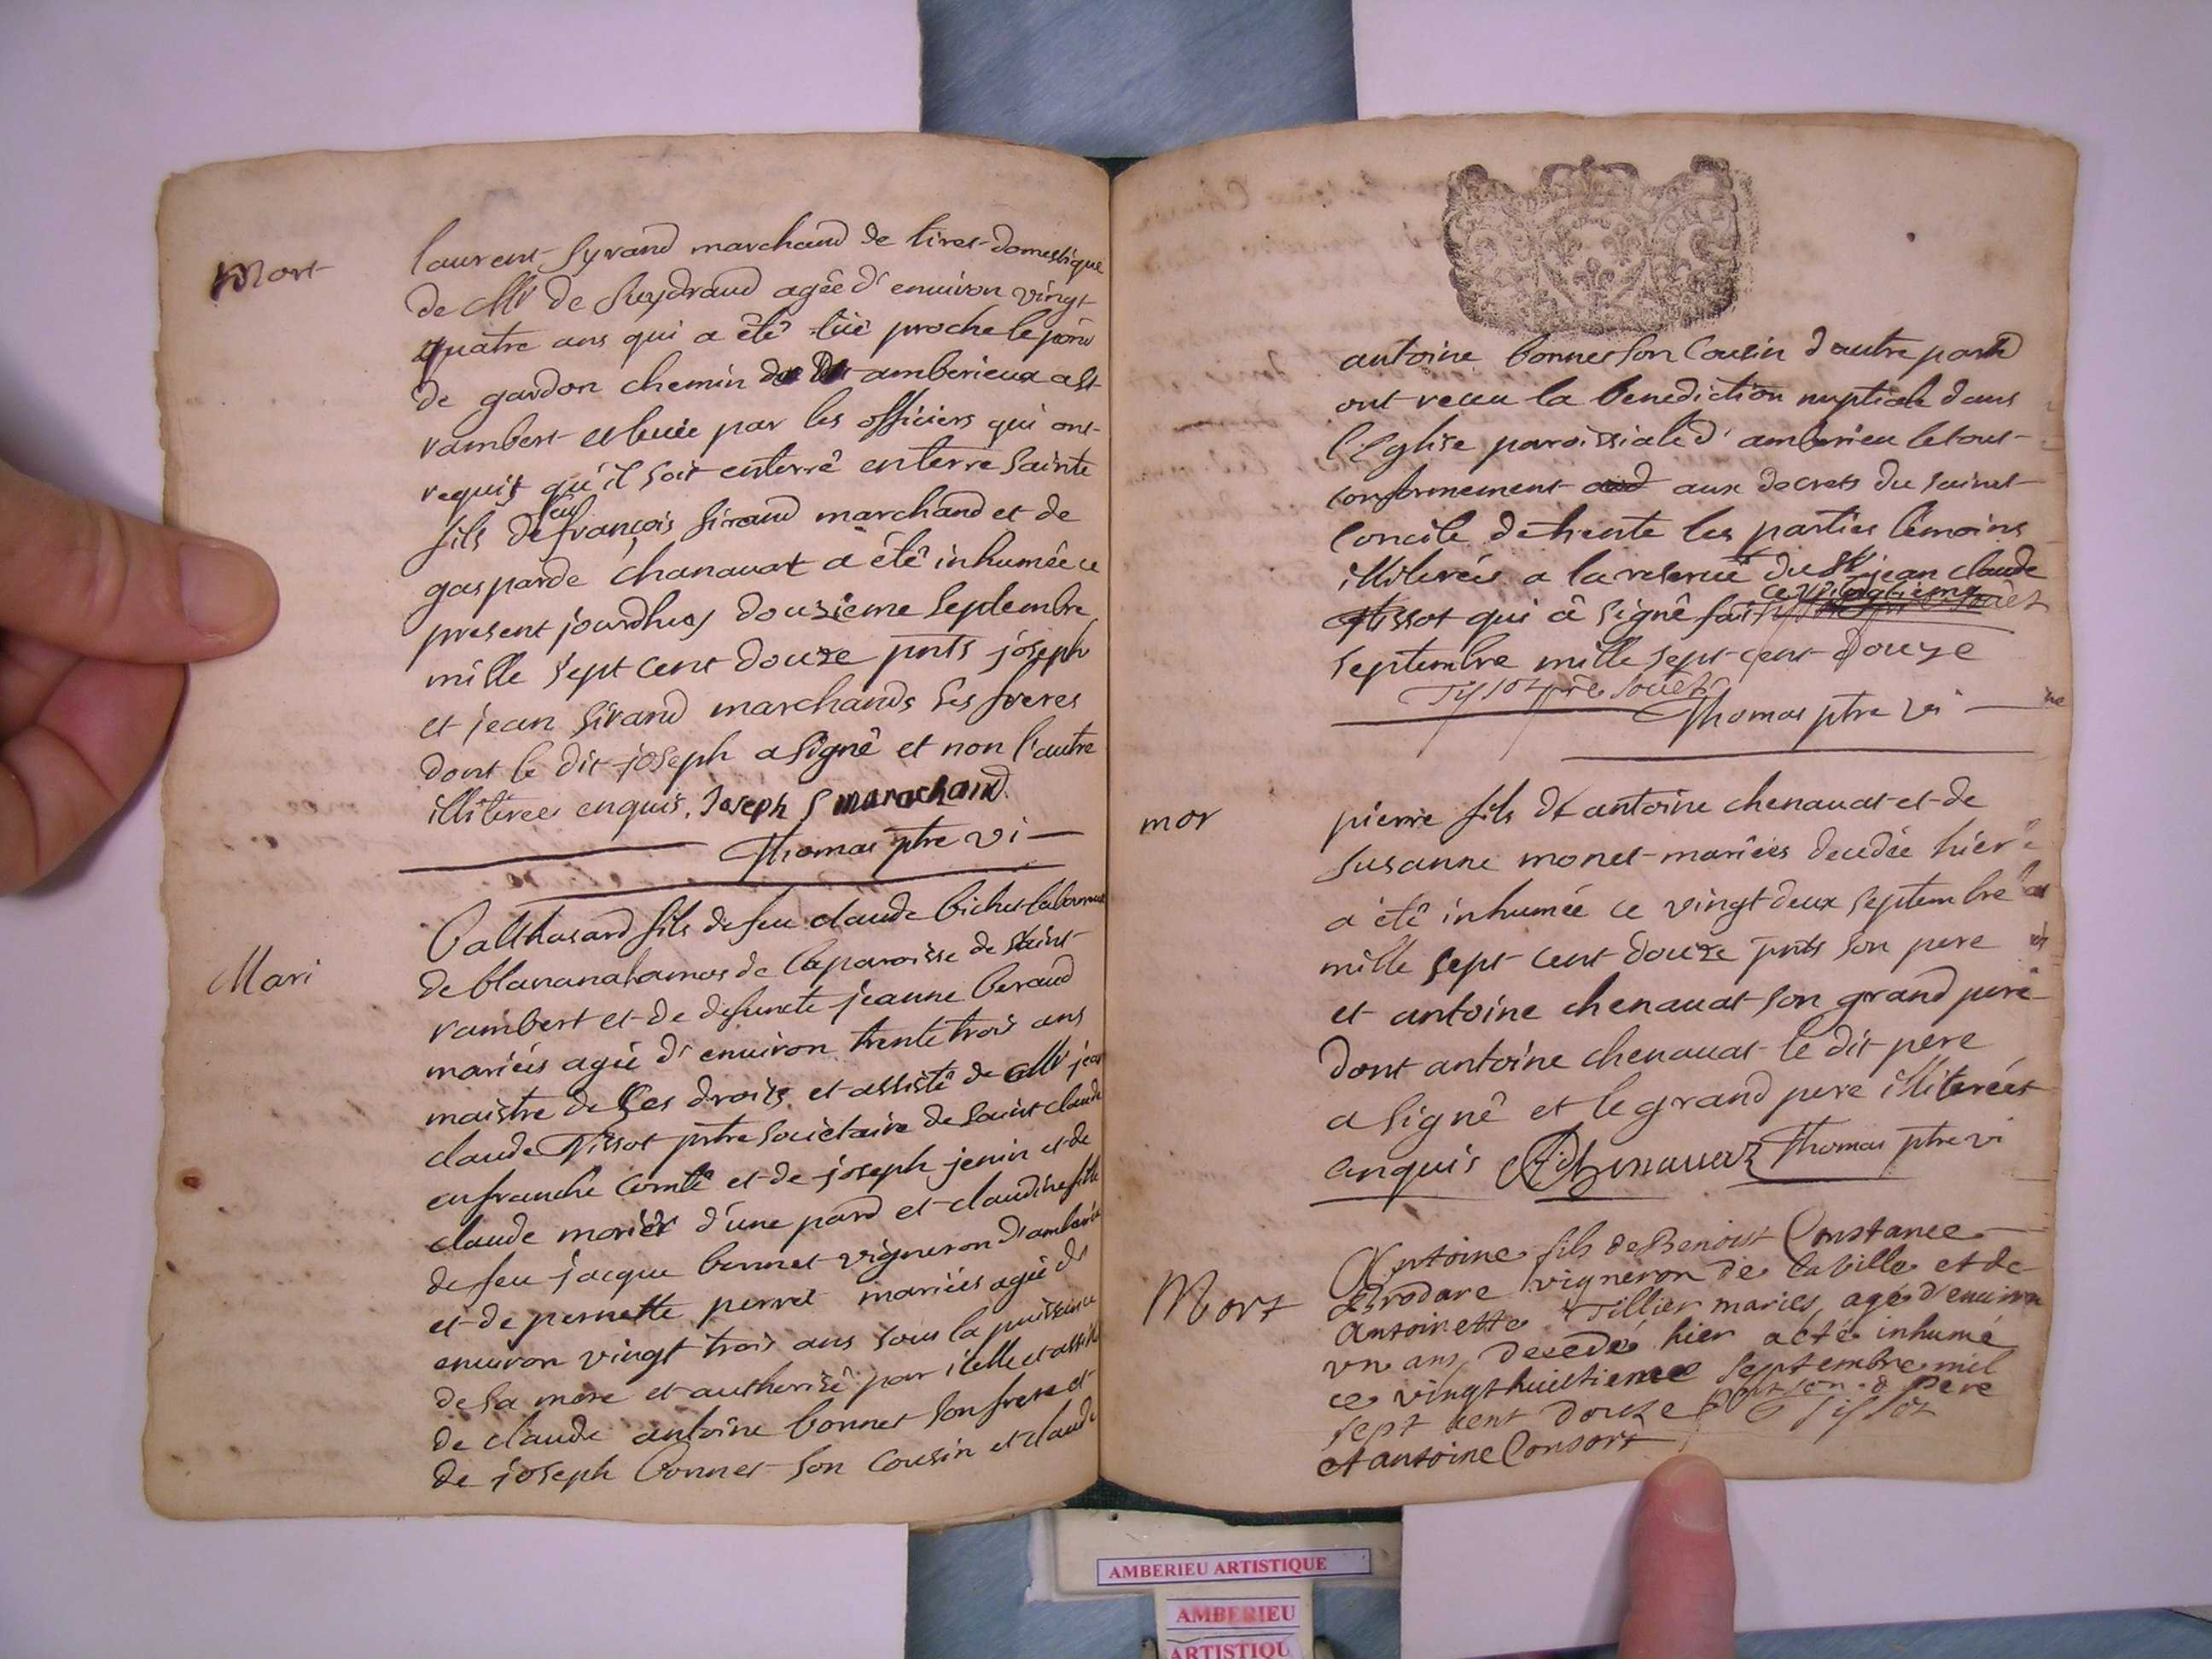 Mort
laurent Syrand marchand de tires domestique
de Mr de Suydraud agée d'enuiron vingt
quatre ans qui a êtê tüé proche le pon
de gardon chemin de amberieux a st
rambert et leuée par les officiers qui ont
requit qu'il soit enterrê enterre Sainte
fils de feu françois Sirand marchand et de
gasparde Chanauat a êtê inhumée ce
present jourdhuy douzieme Septembre
mille Sept cent douze pnts joseph
et jean Sirand marchands Ses freres
dont le dit joseph a Signê et non l'autre
illiterees enquis. Joseph S marachand
Thomas ptre vi
Mari
Balthasard fils de feu claude bichet laboureur
de de la paroisse de Saint
rambert et de defuncte jeanne beraud
mariés agée d'enuiron trente trois ans
maistre de Ses droits et assistê de Mr jean
claude Tissot prtre Societaire de Saint claude
en franche Comtê et de joseph jenin et de
claude morier d'une pard et claudine fille
de feu jacque bonnet vigneron d'amberieu
et de pernette perret mariés agée d'
enuiron vingt trois ans sous la puissance
de Sa mere et authorisê par icelle et assistê
de claude antoine bonnet Son frere et
de joseph bonnet Son Cousin et claude
antoine bonnet Son Cousin d'autre pard
ont receu la benediction nuptiale dans
l'Eglise paroissiale d'amberieu le tout
conformement aux decrets du Saint
Concile de trente les parties temoins
illiterées a la reserue du Sr jean claude
Tissot qui â Signê fait ce vingtieme
Septembre mille Sept cent douze
Tissot ptre Societ
Thomas ptre vi
mor
pierre fils de antoine chenauat et de
Susanne monet mariées decedée hier
a êtê inhumée ce vingt deux Septembre
mille Sept cent douze pnts Son pere
et antoine chenauat Son grand pere
dont antoine chenauat le dit pere
a Signê et le grand pere illiterées
enquis A Chenauaz Thomas ptre vi
Mort
Antoine fils de Benoist Constance
Brodare vigneron de la ville et de
Antoinette Tillier mariés, agé d'enuiron
vn ans decedé hier a eté inhumé
ce vingthuictieme Septembre mil
sept cent douze pnt son pere
et antoine Consort Tissot
AMBERIEU ARTISTIQUE
AMBERIEU
ARTISTIQU